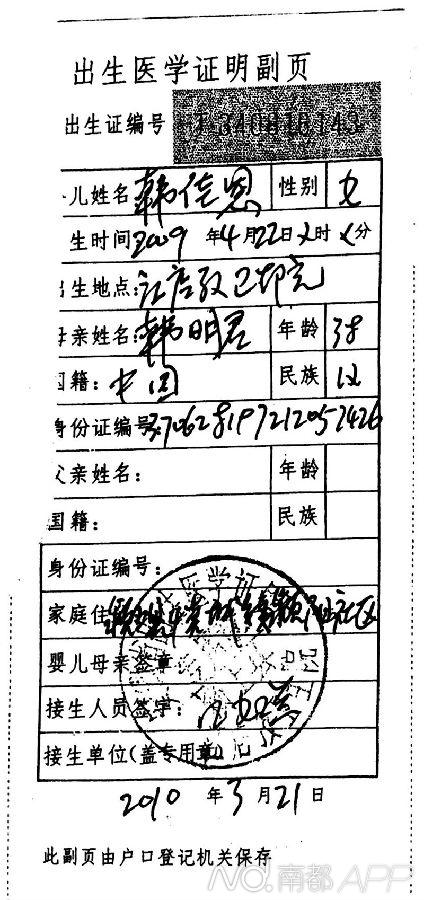 出生医学证明副页
出生证编号 J 340816143
儿姓名 韩佳恩 性别 女
生时间 2009 年 4 月 22 日 时 分
出生地点：
母亲姓名：韩明君 年龄 38
国籍：中国 民族 汉
身份证编号 370628197212057426
父亲姓名： 年龄
国籍： 民族
身份证编号：
家庭住 社区
婴儿母亲签章
接生人员签字：
接生单位(盖专用章)
2010 年 3 月 21 日
此副页由户口登记机关保存
NO.南都APP